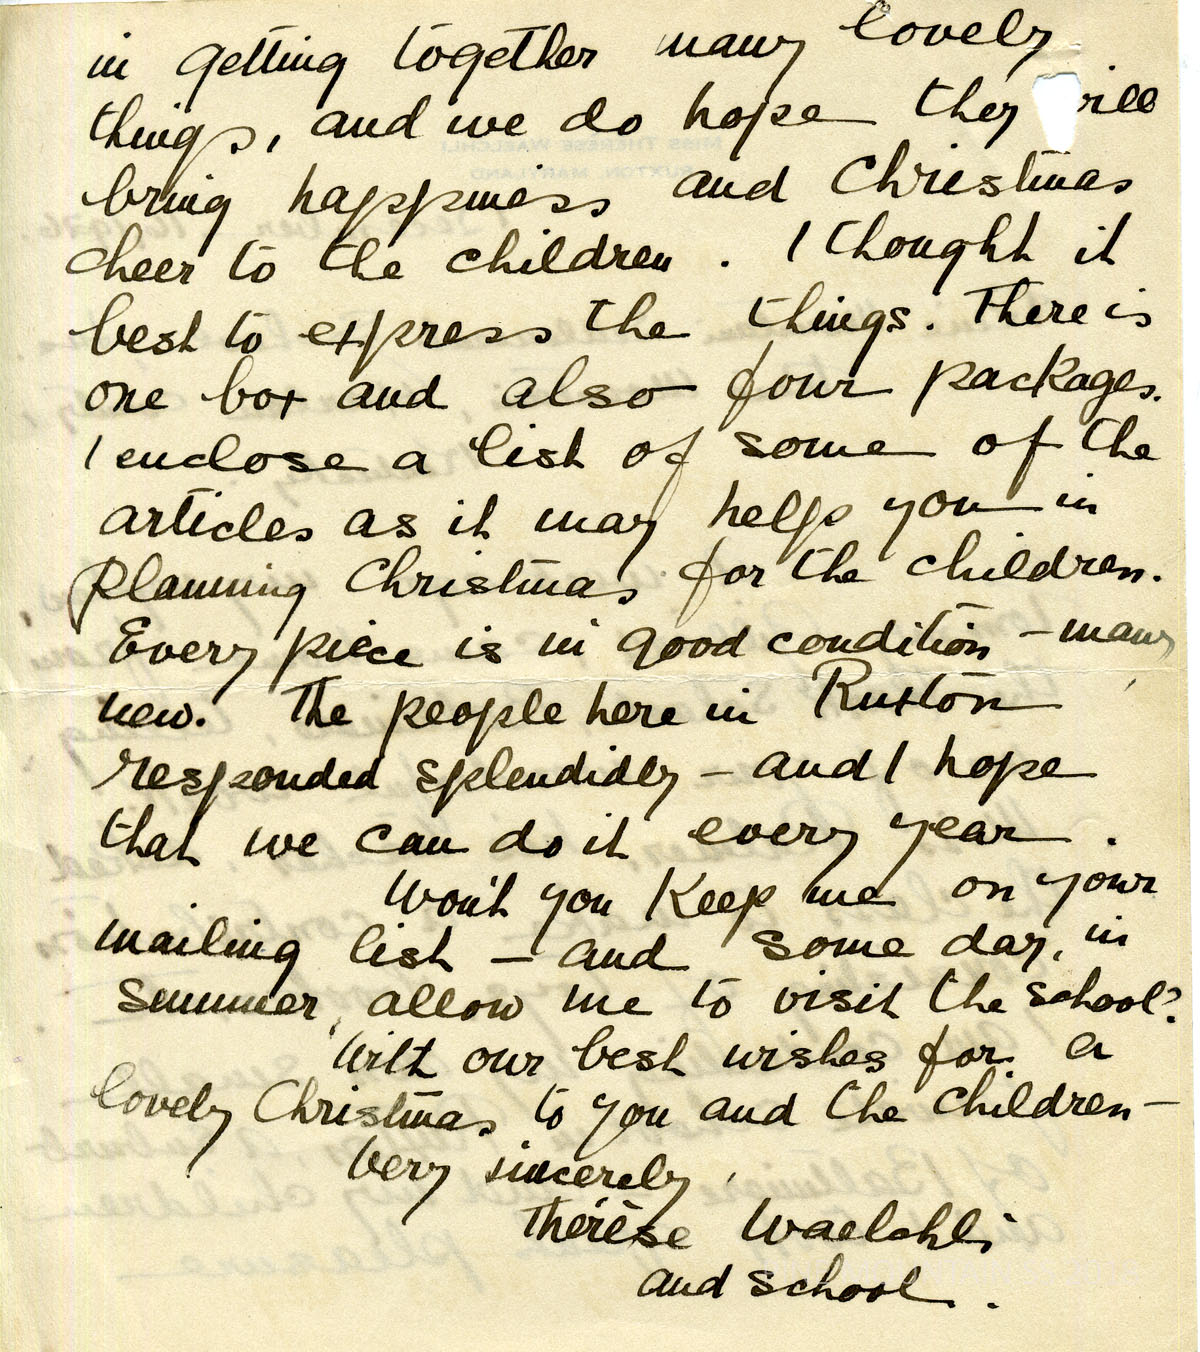 in getting together many lovely
things, and we do hope they will
bring happiness and Christmas
cheer to the children. I thought it
best to express the things. There is
one box and also four packages.
I enclose a list of some of the
articles as it may help you in
planning Christmas for the children.
Every piece is in good condition – many
new. The people here in Ruxton
responded splendidly – and I hope
that we can do it every year.
Won't you keep me on your
mailing list – and some day, in
summer, allow me to visit the school?
With our best wishes for a
lovely Christmas to you and the children –
Very sincerely,
Thérèse Waelchli
and school.